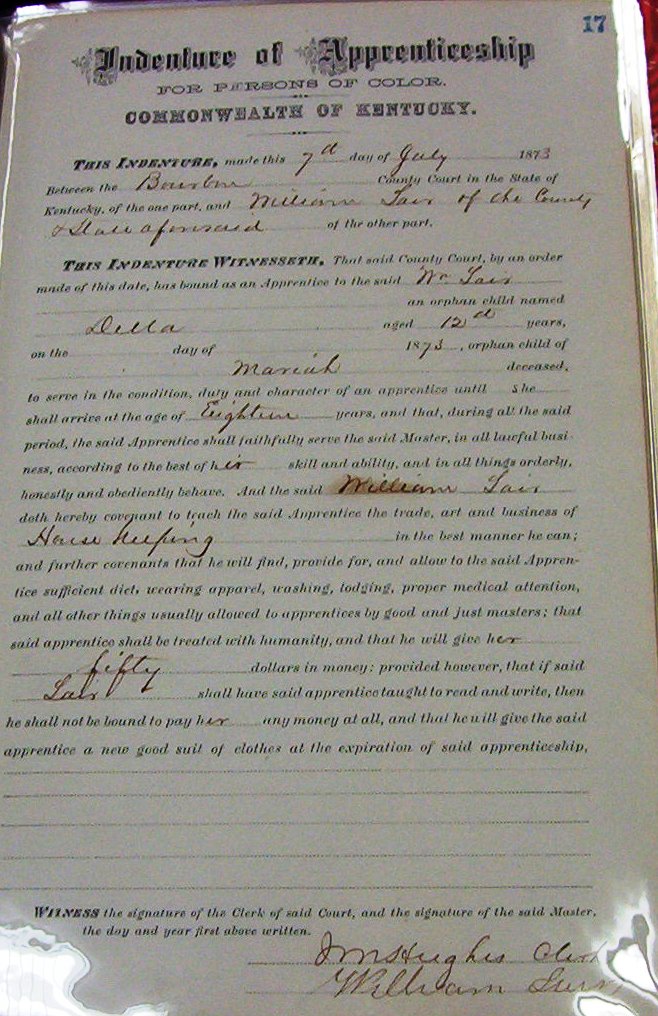 17
Indenture of Apprenticeship
FOR PERSONS OF COLOR.
COMMONWEALTH OF KENTUCKY.
THIS INDENTURE, made this 7d day of July 1873
Between the Bourbon County Court in the State of
Kentucky, of the one part, and William Lair of the County
& State aforesaid of the other part.
THIS INDENTURE WITNESSETH, That said County Court, by an order
made of this date, has bound as an Apprentice to the said Wm Lair
an orphan child named
Della aged 12d years,
on the day of 1873, orphan child of
Mariah deceased,
to serve in the condition, duty and character of an apprentice until she
shall arrive at the age of Eighteen years, and that, during all the said
period, the said Apprentice shall faithfully serve the said Master, in all lawful busi-
ness, according to the best of her skill and ability, and in all things orderly,
honestly and obediently behave. And the said William Lair
doth hereby covenant to teach the said Apprentice the trade, art and business of
House Keeping in the best manner he can;
and further covenants that he will find, provide for, and allow to the said Appren-
tice sufficient diet, wearing apparel, washing, lodging, proper medical attention,
and all other things usually allowed to apprentices by good and just masters; that
said apprentice shall be treated with humanity, and that he will give her
fifty dollars in money; provided however, that if said
Lair shall have said apprentice taught to read and write, then
he shall not be bound to pay her any money at all, and that he will give the said
apprentice a new good suit of clothes at the expiration of said apprenticeship,
WITNESS the signature of the Clerk of said Court, and the signature of the said Master,
the day and year first above written.
Hughes Clerk
William Lair